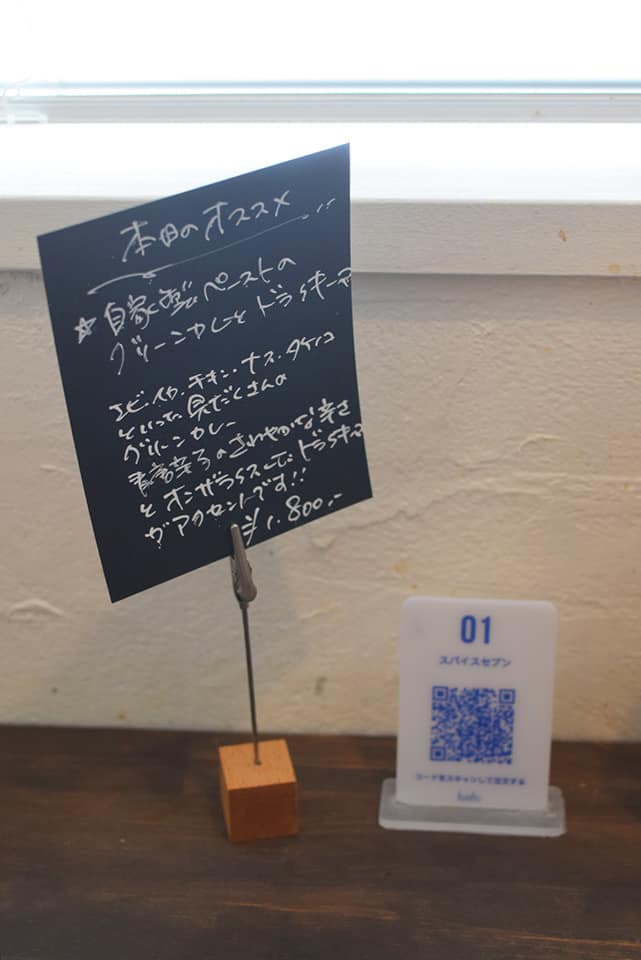 本日のオススメ
☆自家製ペーストの
グリーンカレーと ドライキーマ
エビ・イカ・チキン・ナス・タケノコ
といった具だくさんの
グリーンカレー
青唐辛子のさわやかな辛さ
とオンザライスした ドライキーマ
がアクセントです!!
¥1.800.-
01
スパイスセブン
コードをスキャンして注文する